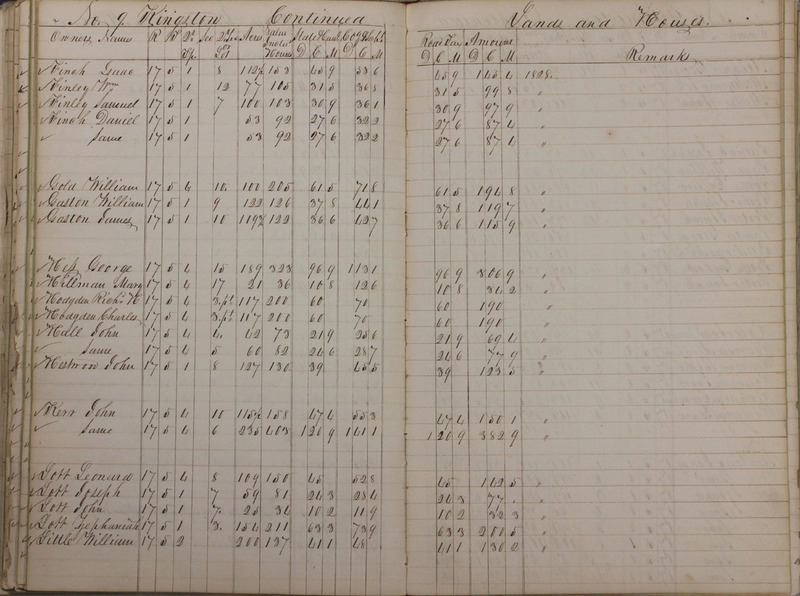 No. 9 Kingston Continued Lands and Houses.
Owners Names R No Sec Lot Acres Value State & Canal Co & School Road Tax Amount Remarks
D C M D C M D C M D C M
Kinch Isaac 17 5 1 8 112½ 153 45 9 53 6 45 9 1 45 4 1828.
Kinley Wm 17 5 1 12 77 105 31 5 36 8 31 5 99 8 "
Kinley Samuel 17 5 1 7 100 103 30 9 36 1 30 9 97 9 "
Kinch Daniel 17 5 1 53 92 27 6 32 2 27 6 87 4 "
Same 17 5 1 53 92 27 6 32 2 27 6 87 4 "
Gold William 17 5 4 10 100 205 61 5 71 8 61 5 1 94 8 "
Gaston William 17 5 1 9 122 126 37 8 44 1 37 8 1 19 7 "
Gaston James 17 5 1 10 119½ 122 36 6 42 7 36 6 1 15 9 "
Hess George 17 5 4 15 189 323 96 9 1 13 1 96 9 3 06 9 "
Hillman Mary 17 5 4 17 21 36 10 8 12 6 10 8 34 2 "
Hodgden Richd H 17 5 4 3.pt 117 200 60 70 60 1 90 "
Hodgden Charles 17 5 4 3.pt 117 200 60 70 60 1 90 "
Hull John 17 5 4 4 42 73 21 9 25 6 21 9 69 4 "
Same 17 5 4 5 60 82 24 6 28 7 24 6 77 9 "
John 17 5 1 8 127 130 39 45 5 39 1 23 5 "
Kerr John 17 5 4 10 115½ 158 47 4 55 3 47 4 1 50 1 "
Same 17 5 4 6 235 403 1 20 9 1 41 1 1 20 9 3 82 9 "
Lott Leonard 17 5 4 8 109 150 45 52 8 45 1 42 5 "
Lott Joseph 17 5 1 7 59 81 24 3 28 4 24 3 77 . "
Lott John 17 5 1 7. 25 34 10 2 11 9 10 2 32 3 "
Lott Zephaniah 17 5 1 3. 154 211 63 3 73 9 63 3 2 00 5 "
Little William 17 5 2 200 137 41 1 48 41 1 1 30 2 "